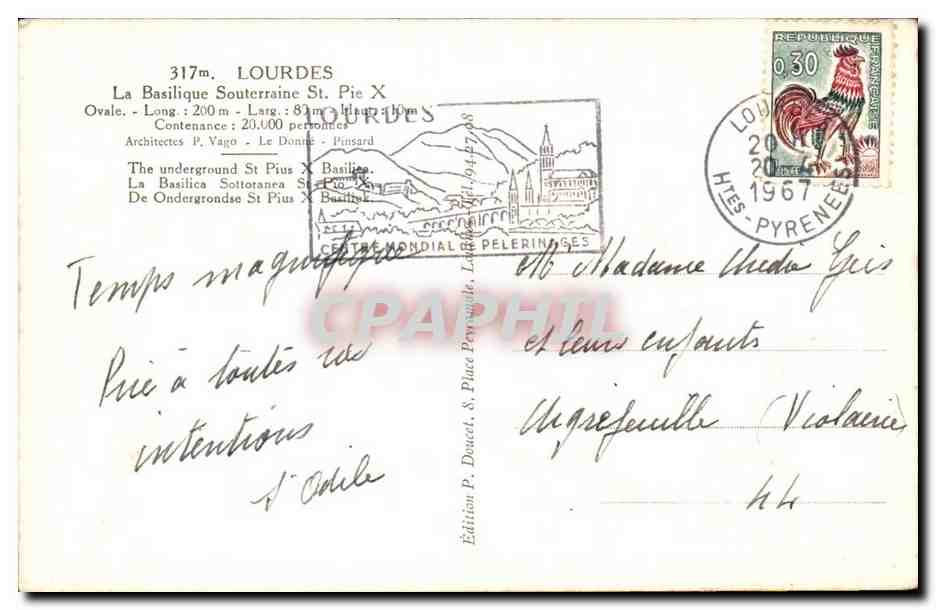 317m. LOURDES
La Basilique Souterraine St. Pie X
Ovale. - Long.: 200 m - Larg.: 80 m - Haut.: 10 m
Contenance : 20.000 personnes
Architectes P. Vago - Le Donné - Pinsard
The underground St Pius X Basilica.
La Basilica Sottoranea St Pio X.
De Ondergrondse St Pius X Basiliek.
LOURDES
CENTRE MONDIAL DE PELERINAGES
REPUBLIQUE FRANÇAISE
0,30
LOU
20
20-4
1967
HTES-PYRENEES
Temps magnifique
Prié à toutes vos
intentions
Sr Odile
Édition P. Doucet, 8, Place Peyramale, Lourdes-Tél. 94-27-08
CPAPHIL
Mr Madame
et leurs enfants
Aigrefeuille
44